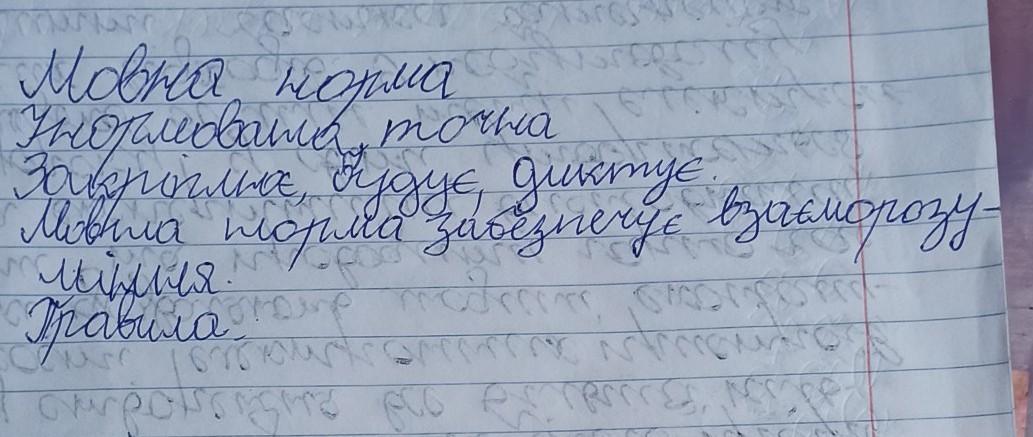 Мовна норма
Унормована, точна
Закріплює, будує, диктує.
Мовна норма забезпечує взаєморозу-
міння.
Правила.